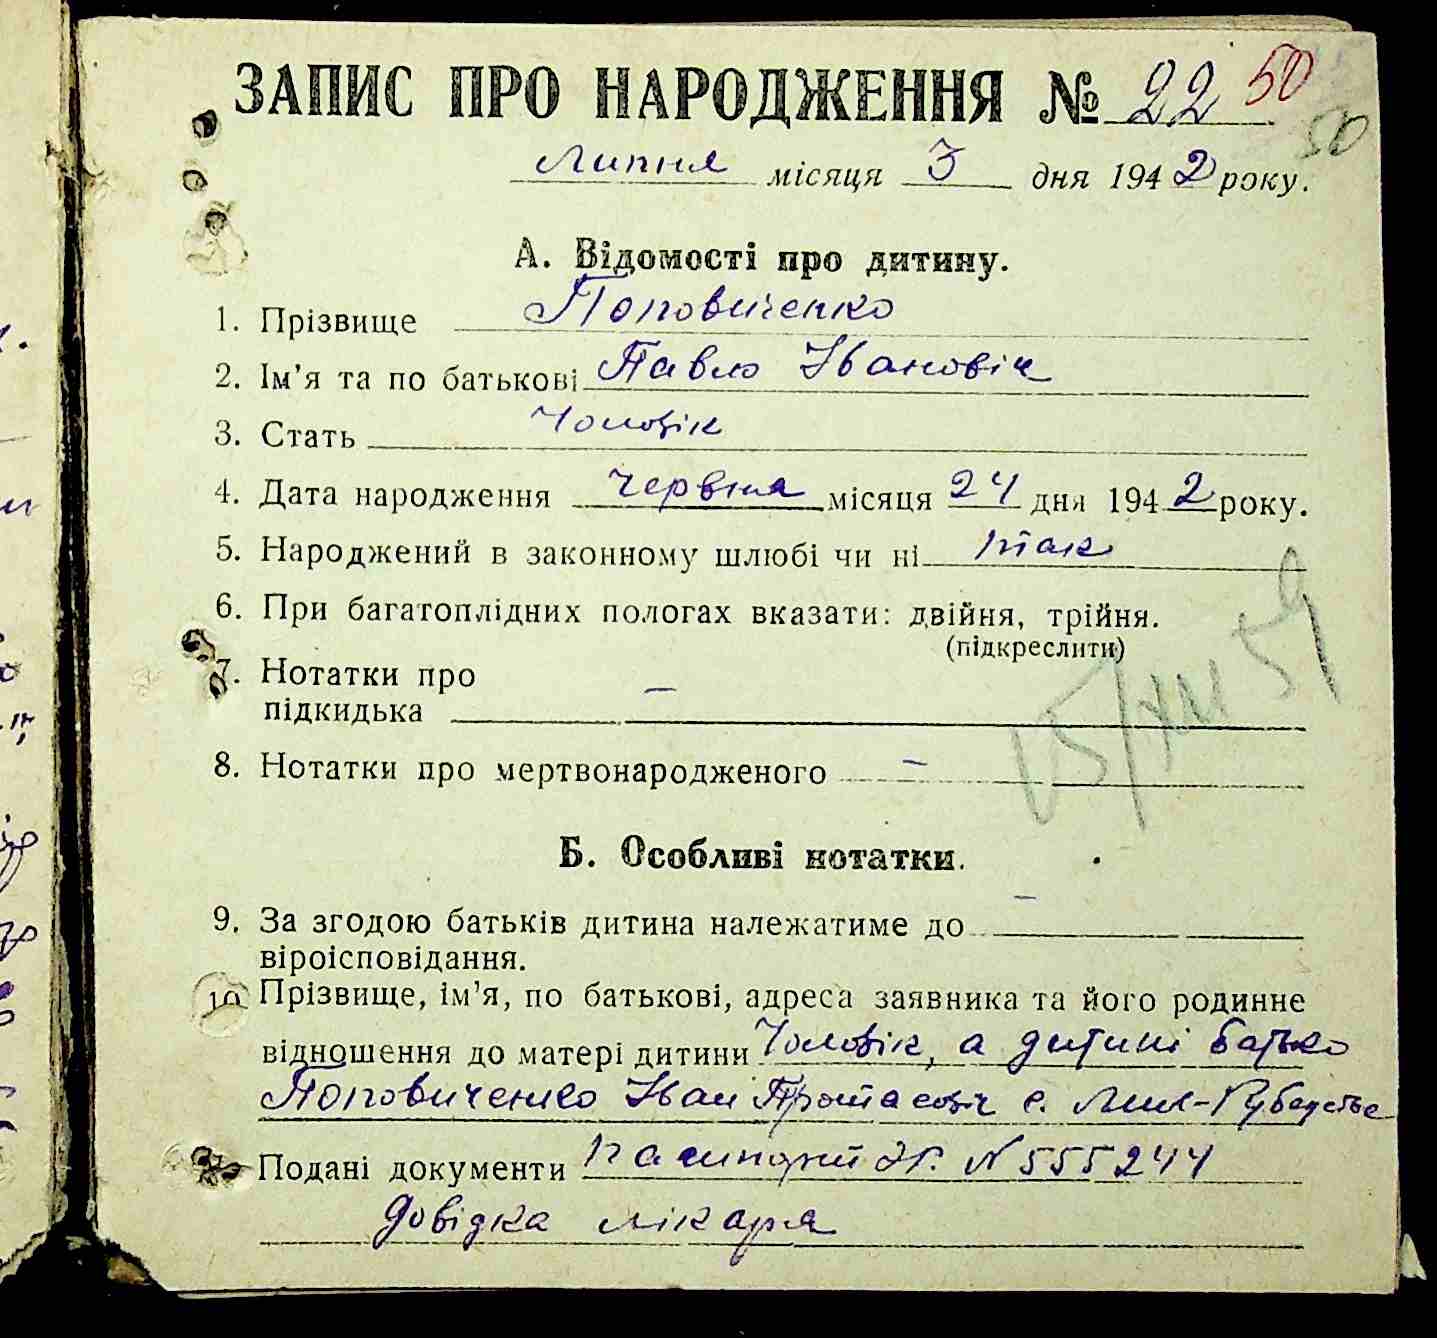 ЗАПИС ПРО НАРОДЖЕННЯ № 22 50
50
Липня місяця 3 дня 1942 року.
А. Відомості про дитину.
1. Прізвище Поповиченко
2. Ім'я та по батькові Павло Іванович
3. Стать Чоловік
4. Дата народження червня місяця 24 дня 1942 року.
5. Народжений в законному шлюбі чи ні так
6. При багатоплідних пологах вказати: двійня, трійня.
(підкреслити)
7. Нотатки про
підкидька —
8. Нотатки про мертвонародженого —
Б. Особливі нотатки.
9. За згодою батьків дитина належатиме до —
віроісповідання.
10 Прізвище, ім'я, по батькові, адреса заявника та його родинне
відношення до матері дитини Чоловік, а дитині батько
Поповиченко Іван Протасович с.
Подані документи паспорт № 555244
довідка лікаря